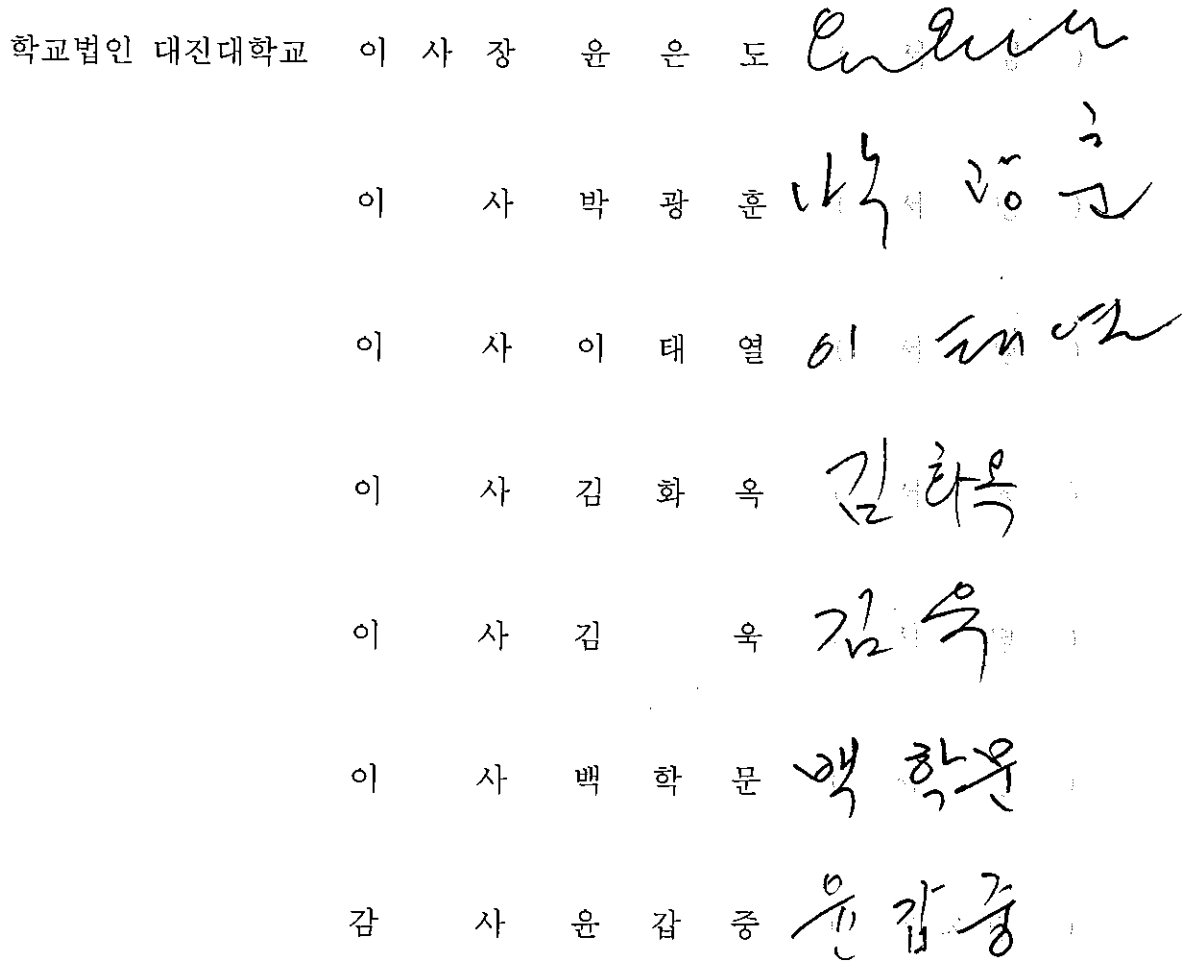 학교법인 대진대학교 이 사 장 윤 은 도
이 사 박 광 훈 박 광 훈
이 사 이 태 열 이 태 열
이 사 김 화 옥 김 화옥
이 사 김 욱 김 욱
이 사 백 학 문 백 학문
감 사 윤 갑 중 윤 갑중